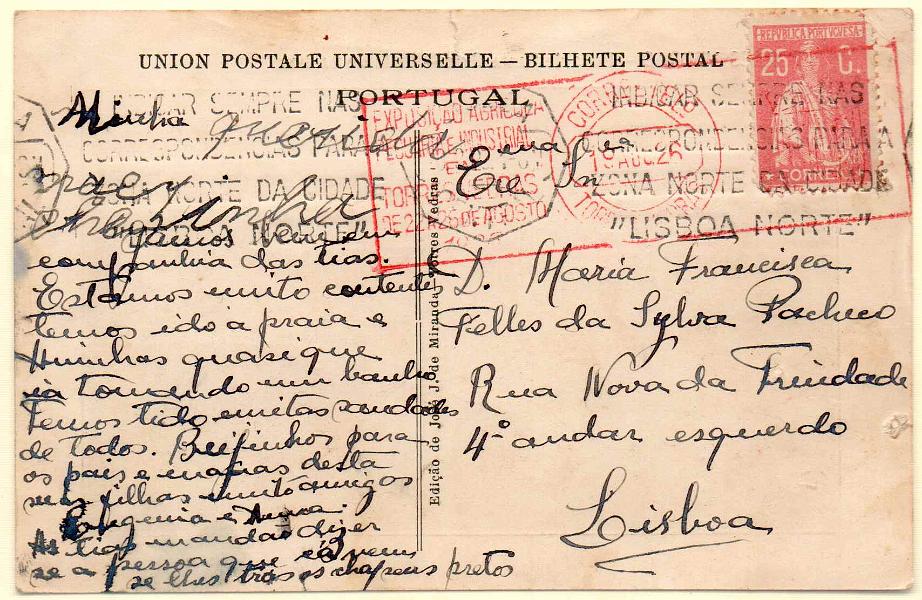 UNION POSTALE UNIVERSELLE — BILHETE POSTAL
PORTUGAL
REPUBLICA PORTUGUESA
25 C.
CORREIO
INDICAR SEMPRE NAS
CORRESPONDENCIAS PARA A
ZONA NORTE DA CIDADE
"LISBOA NORTE"
INDICAR SEMPRE NAS
CORRESPONDENCIAS PARA A
ZONA NORTE DA CIDADE
"LISBOA NORTE"
EXPOSIÇÃO AGRICOLA
INDUSTRIAL
EM
TORRES VEDRAS
DE 22 A 26 DE AGOSTO
CORREIOS
AUG.26
TORRES VEDRAS
Minha querida
mãesinha
companhia das tias.
Estamos muito contentes
temos ido á praia e
Huinhas quasi que
ia tomando um banho
Temos tido muitas saudades
de todos. Beijinhos para
os pais e manas desta
suas filhas muito amigas
Eugenia e
As tias mandão dizer
se a pessoa que cá vem
se lhes trás os chapeus pretos
Exma Sra
D. Maria Francisca
Telles da Sylva Pacheco
Rua Nova da Trindade
4º andar esquerdo
Lisboa
Edição de José J. de Miranda, Torres Vedras